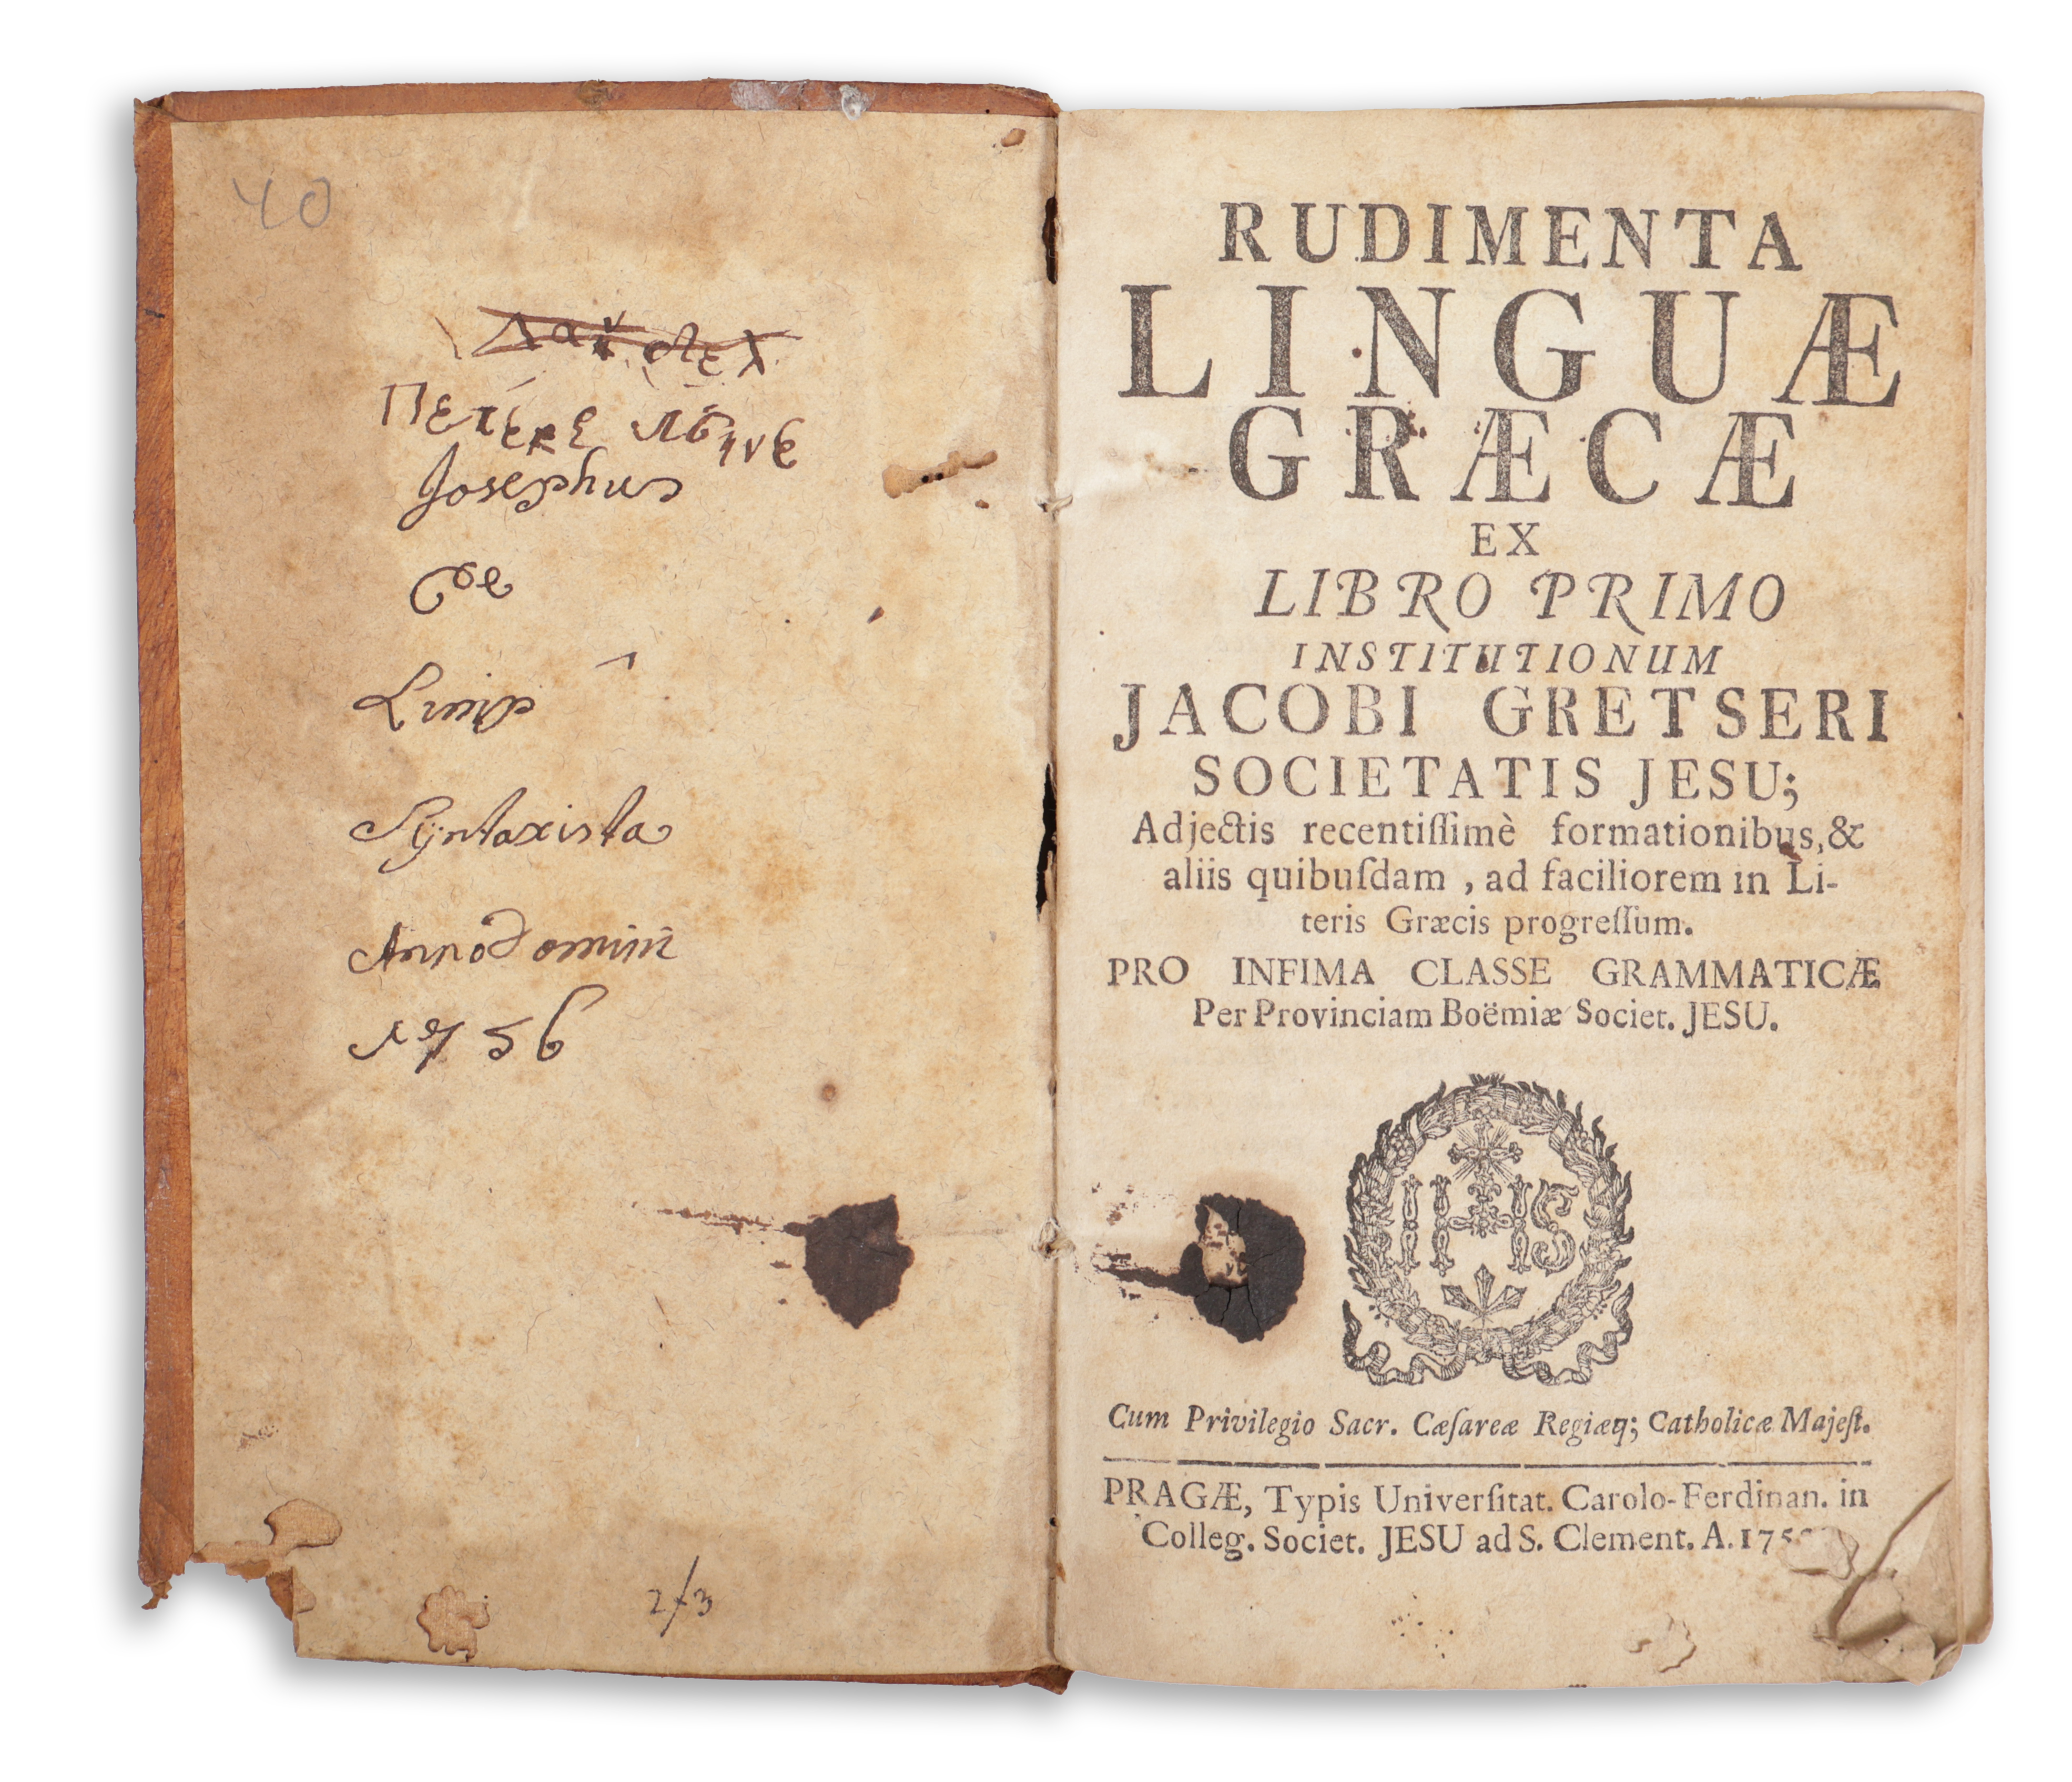 40
Josephus
de
Syntaxista
Anno Domini
1756
2/3
RUDIMENTA
LINGUÆ
GRÆCÆ
EX
LIBRO PRIMO
INSTITUTIONUM
JACOBI GRETSERI
SOCIETATIS JESU;
Adjectis recentiſſimè formationibus, &
aliis quibuſdam , ad faciliorem in Li-
teris Græcis progreſſum.
PRO INFIMA CLASSE GRAMMATICÆ
Per Provinciam Boëmiæ Societ. JESU.
IHS
Cum Privilegio Sacr. Cæſareæ Regiæq; Catholicæ Majeſt.
PRAGÆ, Typis Univerſitat. Carolo-Ferdinan. in
Colleg. Societ. JESU ad S. Clement. A.